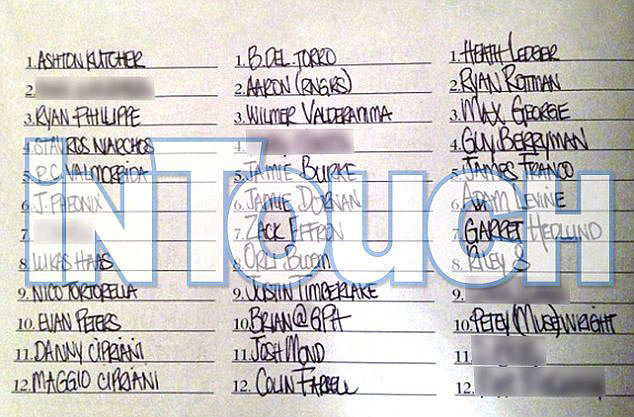 1. ASHTON KUTCHER
2.
3. RYAN PHILIPPE
4. STAVROS NIARCHOS
5. P.C. VALMORBIDA
6. J. PHEONIX
7.
8. LUKAS HAAS
9. NICO TORTORELLA
10. EVAN PETERS
11. DANNY CIPRIANI
12. MAGGIO CIPRIANI
1. B. DEL TORRO
2. AARON (RNGRS)
3. WILMER VALDERAMMA
4.
5. JAIMIE BURKE
6. JAMIE DORNAN
7. ZACK EFFRON
8. ORLY BLOOM
9. JUSTIN TIMBERLAKE
10. BRIAN @ GPH
11. JOSH MOND
12. COLIN FARRELL
1. HEATH LEDGER
2. RYAN ROTTMAN
3. MAX GEORGE
4. GUY BERRYMAN
5. JAMES FRANCO
6. ADAM LEVINE
7. GARRET HEDLUND
8. RILEY S
9.
10. PETEY (MUSE) WRIGHT
11.
12.
iNTOUCH